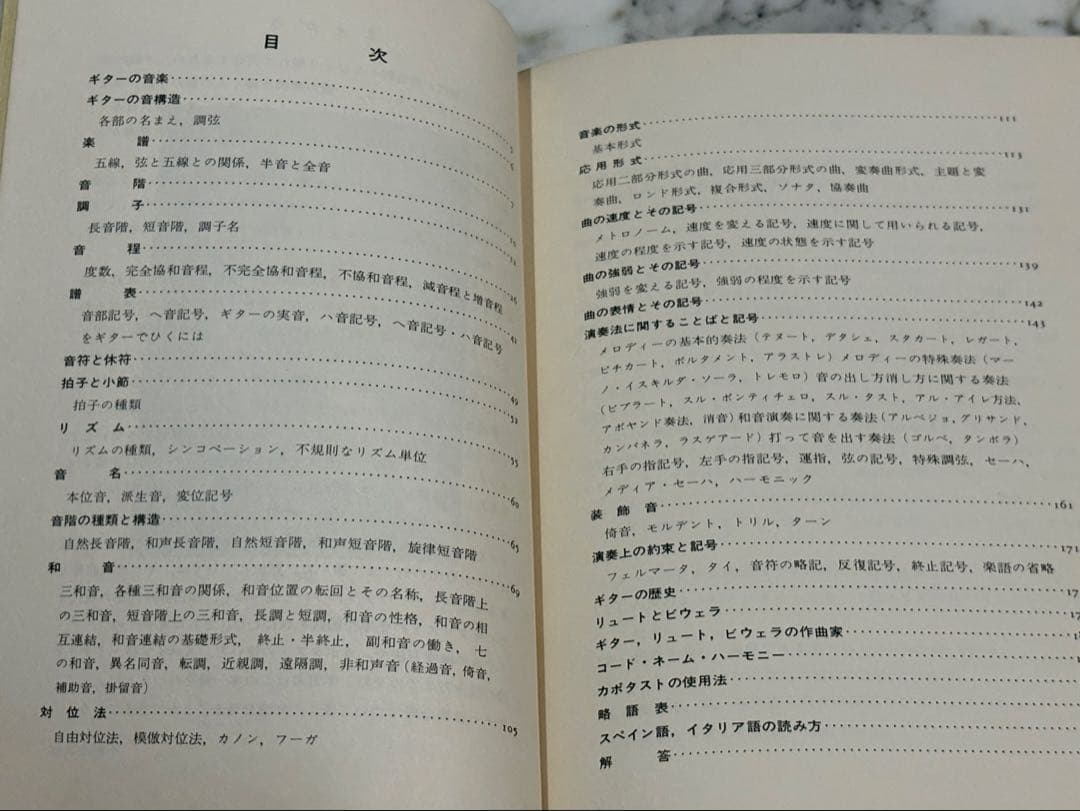 目　次
ギターの音楽
ギターの音構造
各部の名まえ，調弦
楽　譜 5
五線，弦と五線との関係，半音と全音
音　階
調　子
長音階，短音階，調子名
音　程
度数，完全協和音程，不完全協和音程，不協和音程，減音程と増音程
譜　表
音部記号，ヘ音記号，ギターの実音，ハ音記号，ヘ音記号・ハ音記号
をギターでひくには
音符と休符 49
拍子と小節
拍子の種類
リズム 55
リズムの種類，シンコペーション，不規則なリズム単位
音　名 60
本位音，派生音，変位記号
音階の種類と構造 65
自然長音階，和声長音階，自然短音階，和声短音階，旋律短音階
和　音 69
三和音，各種三和音の関係，和音位置の転回とその名称，長音階上
の三和音，短音階上の三和音，長調と短調，和音の性格，和音の相
互連結，和音連結の基礎形式，終止・半終止，副和音の働き，七
の和音，異名同音，転調，近親調，遠隔調，非和声音（経過音，倚音，
補助音，掛留音）
対位法 105
自由対位法，模倣対位法，カノン，フーガ
音楽の形式 111
基本形式
応用形式 113
応用二部分形式の曲，応用三部分形式の曲，変奏曲形式，主題と変
奏曲，ロンド形式，複合形式，ソナタ，協奏曲
曲の速度とその記号 131
メトロノーム，速度を変える記号，速度に関して用いられる記号，
速度の程度を示す記号，速度の状態を示す記号
曲の強弱とその記号 139
強弱を変える記号，強弱の程度を示す記号
曲の表情とその記号 142
演奏法に関することばと記号 143
メロディーの基本的奏法（テヌート，デタシェ，スタカート，レガート，
ピチカート，ポルタメント，アラストレ）メロディーの特殊奏法（マー
ノ・イスキルダ・ソーラ，トレモロ）音の出し方消し方に関する奏法
（ビブラート，スル・ポンティチェロ，スル・タスト，アル・アイレ方法，
アポヤンド奏法，消音）和音演奏に関する奏法（アルペジョ，グリサンド，
カンパネラ，ラスゲアード）打って音を出す奏法（ゴルペ，タンボラ）
右手の指記号，左手の指記号，運指，弦の記号，特殊調弦，セーハ，
メディア・セーハ，ハーモニック
装飾音 161
倚音，モルデント，トリル，ターン
演奏上の約束と記号 171
フェルマータ，タイ，音符の略記，反復記号，終止記号，楽語の省略
ギターの歴史
リュートとビウェラ
ギター，リュート，ビウェラの作曲家
コード・ネーム・ハーモニー
カポタストの使用法
略語表
スペイン語，イタリア語の読み方
解　答